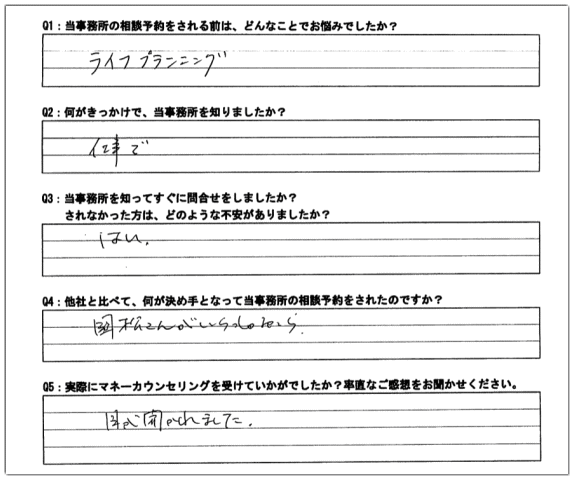 Q1：当事務所の相談予約をされる前は、どんなことでお悩みでしたか？
ライフプランニング
Q2：何がきっかけで、当事務所を知りましたか？
仕事で
Q3：当事務所を知ってすぐに問合せをしましたか？
されなかった方は、どのような不安がありましたか？
はい。
Q4：他社と比べて、何が決め手となって当事務所の相談予約をされたのですか？
さんがいらしたから。
Q5：実際にマネーカウンセリングを受けていかがでしたか？率直なご感想をお聞かせください。
目が開かれました。